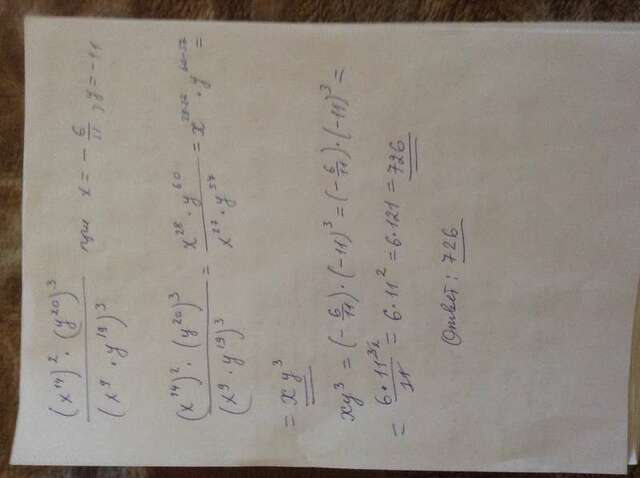 (x¹⁴)² · (y²⁰)³ / (x⁹ · y¹⁹)³ при x = - 6/11, y = -11
(x¹⁴)² · (y²⁰)³ / (x⁹ · y¹⁹)³ = x²⁸ · y⁶⁰ / x²⁷ · y⁵⁷ = x²⁸⁻²⁷ · y⁶⁰⁻⁵⁷ =
= xy³
xy³ = (- 6/11) · (-11)³ = (- 6/11) · (-11)³ =
= 6 · 11³ ² / 11 = 6 · 11² = 6 · 121 = 726
Ответ: 726